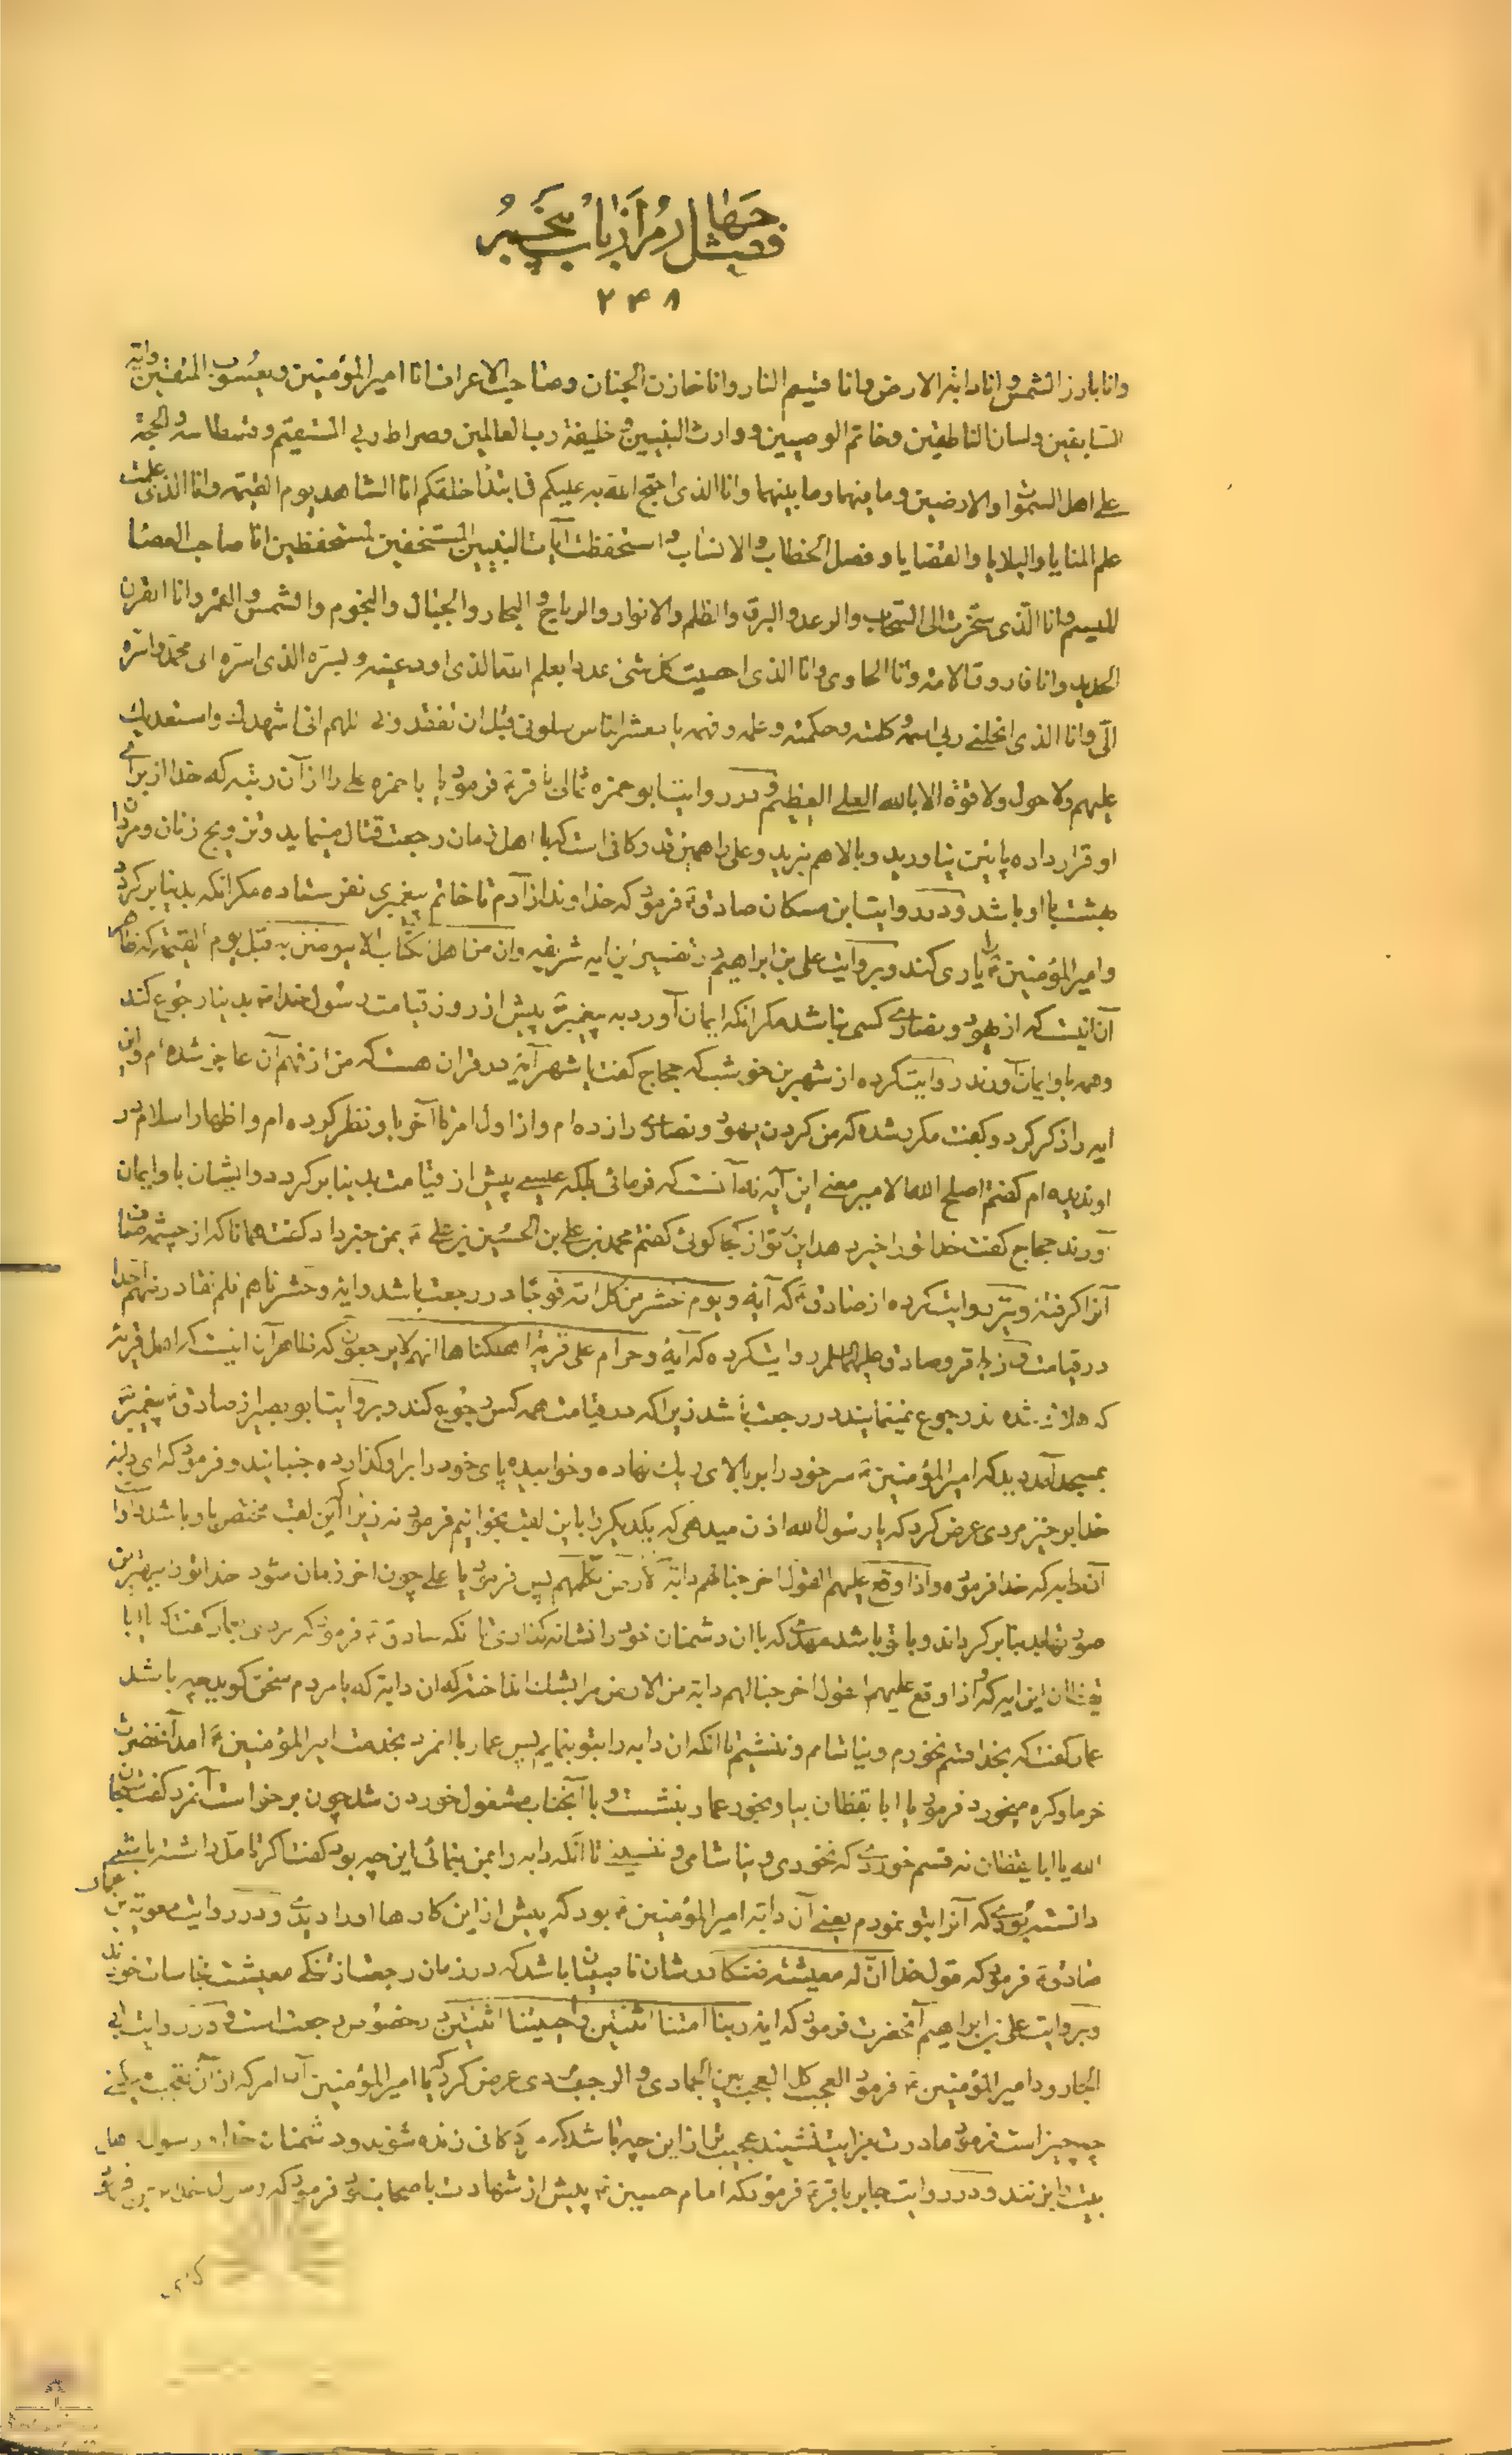 فصل چهارم از باب پنجم
۲۴۸
وانا بارز الشمس وانا دابة الارض وانا قسیم النار وانا خازن الجنان وصاحب الاعراف انا امیرالمؤمنین ویعسوب المتقین وایة
السابقین ولسان الناطقین وخاتم الوصیین ووارث النبیین وخلیفة رب العالمین وصراط ربی المستقیم وقسطاسه والحجة
علی اهل السموات والارضین وما فیهما وما بینهما وانا الذی احتج الله به علیکم فی ابتداء خلقکم انا الشاهد یوم القیمة وانا الذی علمت
علم المنایا والبلایا والقضایا وفصل الخطاب والانساب واستحفظت آیات النبیین المستخفین المستحفظین انا صاحب العصا
المیسم وانا الذی سخرت الی السحاب والرعد والبرق والظلم والانوار والریاح والبحار والجبال والنجوم والشمس والقمر وانا القرن
الحدید وانا فاروق الامة وانا الحاوی وانا الذی احصیت کل شئ عددا بعلم الله الذی اودعنیه وبسره الذی اسره الی محمد واسره
الی وانا الذی انحلنی ربی اسمه وکلمته وحکمته وعلمه وفهمه یا معشر الناس سلونی قبل ان تفقدونی اللهم انی اشهدک واستعدیک
علیهم ولا حول ولا قوة الا بالله العلی العظیم ودر روایت ابو حمزه ثمالی باقر ع فرمود یا با حمزه علی را از آن رتبه که خدا از برای
او قرار داده پایین نیاورید وبالا هم نبرید وعلی را همین قدر کافی است که با اهل زمان رجعت قتال مینماید وتزویج زنان ومردان
بهشت با او باشد ودر روایت ابن مسکان صادق ع فرمود که خداوند از آدم تا خاتم پیغمبری نفرستاده مکر انکه بدنیا برکردد
وامیرالمؤمنین ع را یاری کند وبروایت علی بن ابراهیم در تفسیر این ایه شریفه وان من اهل الکتاب الا لیومنن به قبل یوم القیمة که ظاهر
آن انیست که از یهود ونصاری کسی نباشد مکر انکه ایمان آورد به پیغمبر ص پیش از روز قیامت رسول خدا ص بدنیا رجوع کند
وهمه باو ایمان آورند روایت کرده از شهر بن خوشب که حجاج کفت یا شهر آیة در قران هست که من از فهم آن عاجز شده‌ام واین
ایه را ذکر کرد وکفت مکرر شده که من کردن یهود ونصاری را زده ام واز اول امر تا آخر باو نظر کرده ام واظهار اسلام در
او ندیده ام کفتم اصلح الله الامیر معنی این آیه نه آنست که فرمائی بلکه عیسی پیش از قیامت بدنیا برکردد وایشان باو ایمان
آورند حجاج کفت خدا تورا خیر دهد این را تو از کجا کوئی کفتم محمد بن علی بن الحسین بن علی ع بمن خبر داد کفت همانا که از چشمه صاف
آنرا کرفته ونیز روایت کرده از صادق ع که آیه ویوم نحشر من کل امة فوجا در رجعت باشد وایه وحشرناهم فلم نغادر منهم احدا
در قیامت ونیز از باقر وصادق علیهما السلام روایت کرده که آیة وحرام علی قریة اهلکناها انهم لا یرجعون که ظاهر آن انیست که اهل قریه
که هلاک شده اند رجوع نمینمایند در رجعت باشد زیرا که در قیامت همه کس رجوع کند وبروایت ابو بصیر از صادق ع پیغمبر ص
بمسجد آمد دید که امیرالمؤمنین ع سر خود را بر بالای ریک نهاده وخوابیده پای خود را براو کذارده جنبانید وفرمود که ای دابة
خدا برخیز مردی عرض کرد که یا رسول الله اذن میدهی که یکدیکر را باین لقب بخوانیم فرمود نه زیرا که این لقب مختص باو باشد واوست
آن دابه که خدا فرموده واذا وقع علیهم القول اخرجنا لهم دابة من الارض تکلمهم پس فرمود یا علی چون اخر زمان شود خدا تورا ببهترین
صورتها بدنیا برکرداند وبا تو باشد میسمی که با ان دشمنان خود را نشانه کذاری بانکه صادق ع فرمود که مردی بعمار کفت که یا ابا
یقظان این ایه که واذا وقع علیهم القول اخرجنا لهم دابة من الارض مرا بشک انداخته که ان دابه که با مردم سخن کوید چه باشد
عمار کفت که بخدا قسم نخورم ونیاشامم وننشینم تا انکه ان دابه را بتو بنمایم پس عمار با انمرد بخدمت امیرالمؤمنین ع امد آنحضرت
خرما وکره میخورد فرمود یا ابا یقظان بیا وبخور عمار بنشست وبا آنجناب مشغول خوردن شد چون برخواست آنمرد کفت سبحان
الله یا ابا یقظان نه قسم خوردی که نخوری ونیاشامی وننشینی تا آنکه دابه را بمن بنمائی این چه بود کفت اکر تامل داشته باشی
دانسته بودی که آنرا بتو نمودم یعنی آن دابه امیرالمؤمنین ع بود که پیش از این کارها اورا دیدی ودر روایت معویة بن عمار
صادق ع فرمود که قول خدا ان له معیشة ضنکا در شان ناصبیان باشد که در زمان رجعت از تنکی معیشت نجاسات خورند
وبروایت علی بن ابراهیم آنحضرت فرمود که ایه ربنا امتنا اثنتین واحییتنا اثنتین در خصوص رجعت است ودر روایت ابی
الجارود امیرالمؤمنین ع فرمود العجب کل العجب بین الجمادی والرجب مردی عرض کرد که یا امیرالمؤمنین آن امر که از آن تعجب میکنی
چه چیز است فرمود مادرت بعزایت نشیند عجیب تر از این چه باشد که مردکانی زنده شوند ودشمنان خدا ورسول واهل
بیت را بزنند ودر روایت جابر باقر ع فرمود که امام حسین ع پیش از شهادت باصحاب خود فرمود که رسول خدا ص